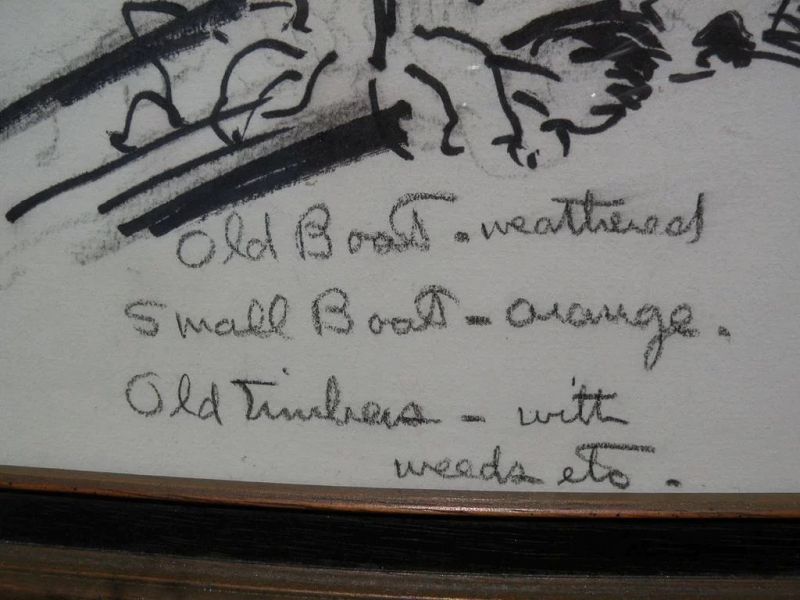 Old Boat - weathered
Small Boat - orange.
Old Timbers - with
weeds etc.